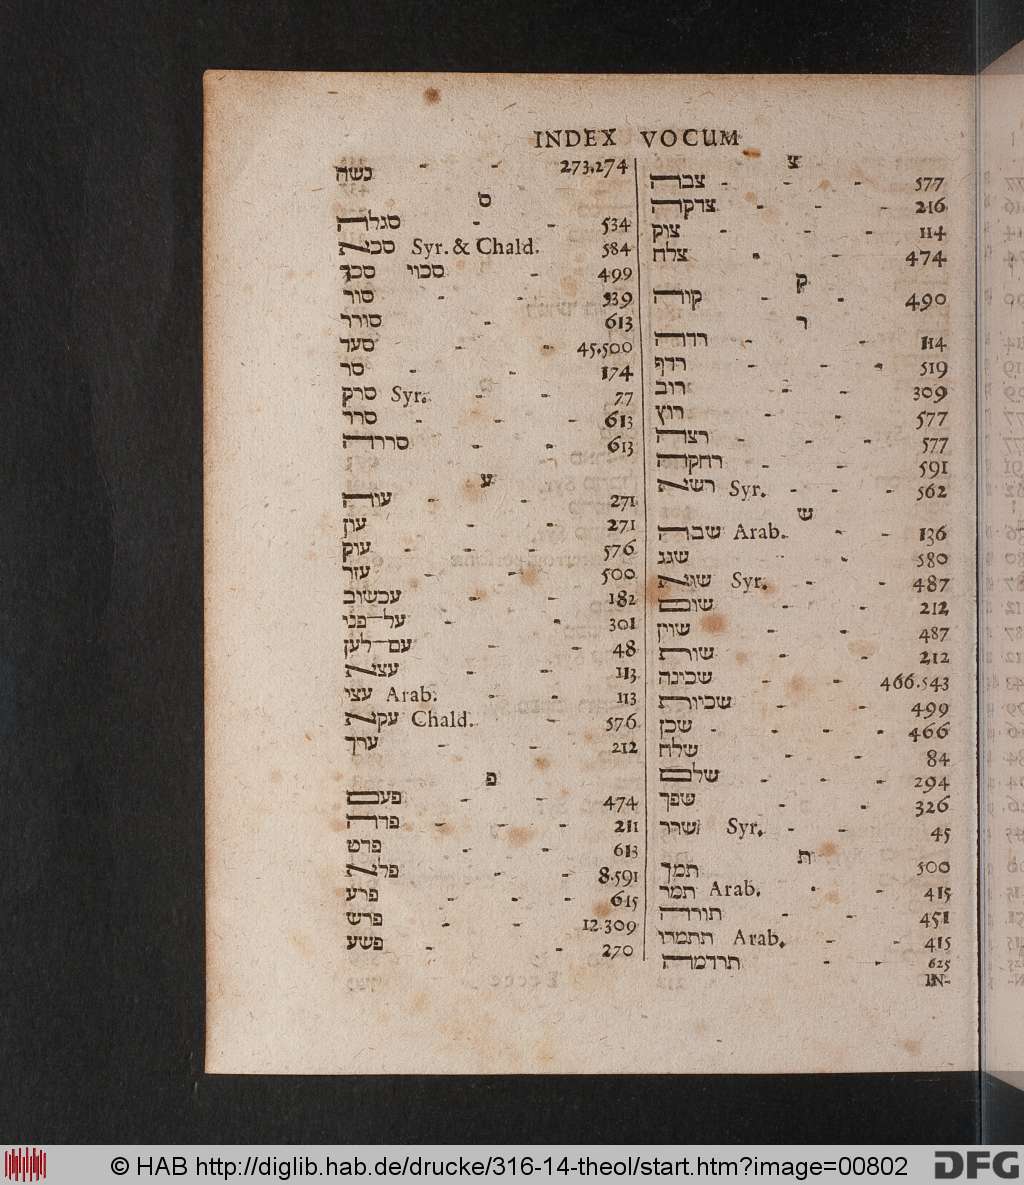 INDEX VOCUM
נשה - - 273.274
ס
סגלה - - 534
סכינא Syr. & Chald. 584
סכוי סכך - 499
סור - - 539
סורר - 613
סעד - - 45.500
סר - - 174
סרק Syr. - - 77
סרר - - - 613
סררה - - 613
ע
עוה - - 271
עון - - 271
עוק - - - 576
עזר - - 500
עכשוב - - 182
על־פני - - 301
עם־לען - - 48
עצא - - 113
עצי Arab. - - 113
עקא Chald. - 576
ערך - - 212
פ
פעם - - 474
פדה - - - 211
פרט - - 613
פלא - - 8.591
פרע - - - 615
פרש - - 12.309
פשע - - 270
צ
צבה - - - 577
צדקה - - - 216
צוק - - - 114
צלח - - 474
ק
קוה - - 490
ר
רדה - - 114
רדף - - - 519
רוב - - 309
רוץ - - 577
רצה - - - 577
רחקה - - 591
רשא Syr. - - - 562
ש
שבה Arab. - - 136
שגג - 580
שגא Syr. - - 487
שום - - 212
שוין - - 487
שות - - 212
שכינה - - 466.543
שכיות - - 499
שכן - - - - 466
שלח - - 84
שלם - - - 294
שפך - - 326
שרר Syr. - - 45
ת
תמך - - 500
תמר Arab. - - 415
תורה - - 451
תתמרו Arab. - - 415
תרדמה - - 625
IN-
© HAB http://diglib.hab.de/drucke/316-14-theol/start.htm?image=00802
DFG